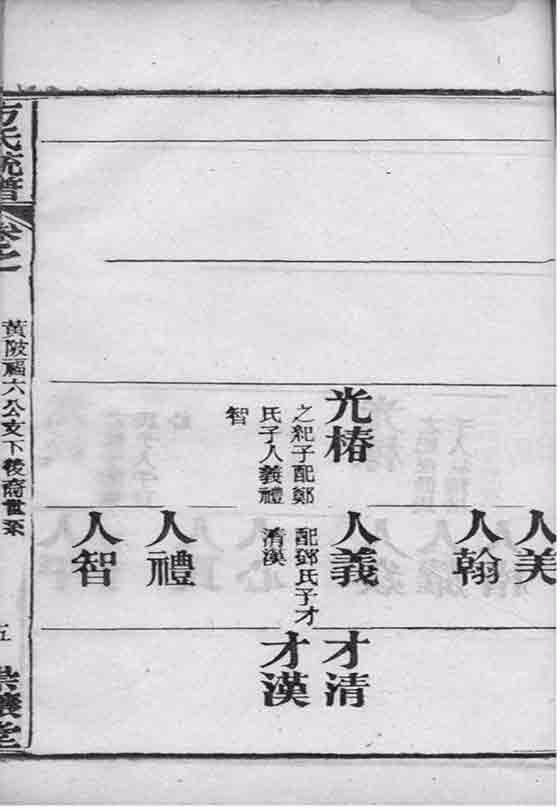 光椿
之紀子配鄭
氏子人義禮
智
人美
人翰
人義
配鄧氏子才
清漢
人禮
人智
才清
才漢
方氏統譜
黃陂福六公支下後裔世系
五